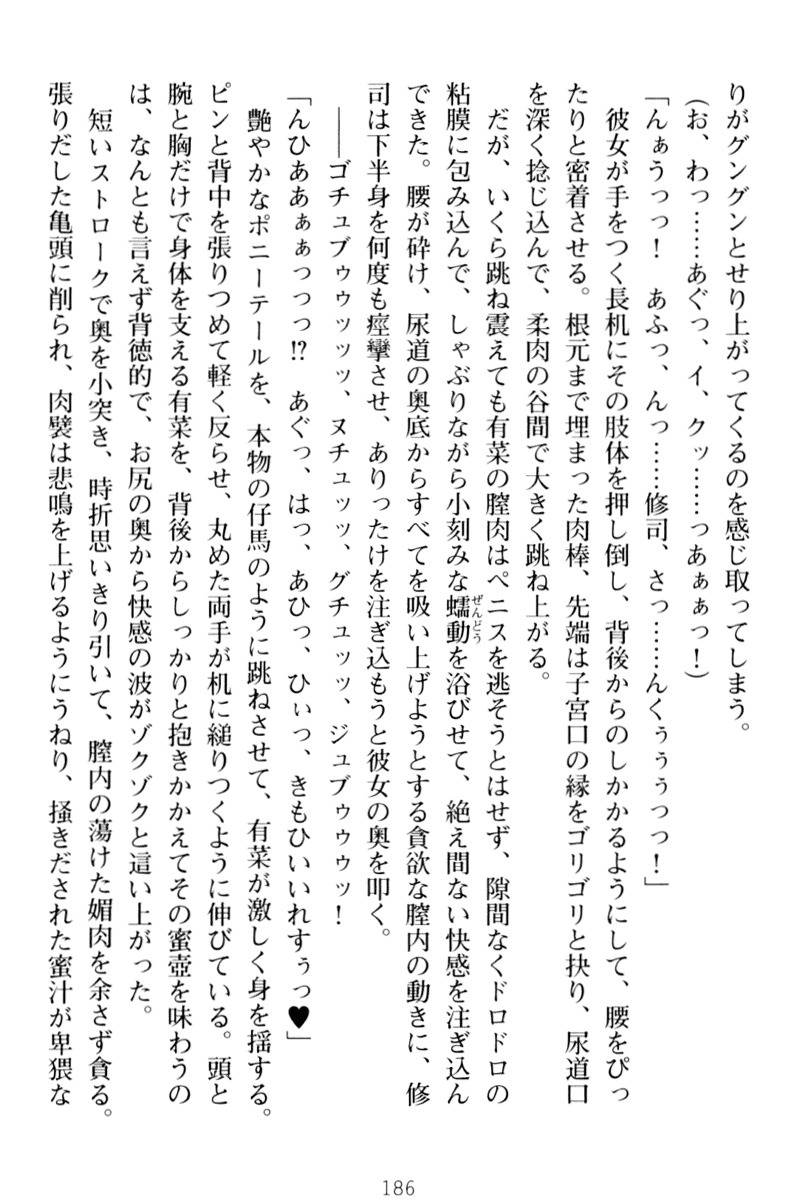 りがグングンとせり上がってくるのを感じ取ってしまう。
(お、わっ……あぐっ、イ、クッ……っあぁぁっ!)
「んぁうっっ!　あふっ、んっ……修司、さっ……んくぅぅぅっっ!」
彼女が手をつく長机にその肢体を押し倒し、背後からのしかかるようにして、腰をぴっ
たりと密着させる。根元まで埋まった肉棒、先端は子宮口の縁をゴリゴリと抉り、尿道口
を深く捻じ込んで、柔肉の谷間で大きく跳ね上がる。
だが、いくら跳ね震えても有菜の膣肉はペニスを逃そうとはせず、隙間なくドロドロの
粘膜に包み込んで、しゃぶりながら小刻みな蠕動ぜんどうを浴びせて、絶え間ない快感を注ぎ込ん
できた。腰が砕け、尿道の奥底からすべてを吸い上げようとする貪欲な膣内の動きに、修
司は下半身を何度も痙攣させ、ありったけを注ぎ込もうと彼女の奥を叩く。
――ゴチュブゥゥッッッ、ヌチュッッ、グチュッッ、ジュブゥゥゥッ!
「んひああぁぁっっっ!?　あぐっ、はっ、あひっ、ひぃっ、きもひいいれすぅっ♥」
艶やかなポニーテールを、本物の仔馬のように跳ねさせて、有菜が激しく身を揺する。
ピンと背中を張りつめて軽く反らせ、丸めた両手が机に縋りつくように伸びている。頭と
腕と胸だけで身体を支える有菜を、背後からしっかりと抱きかかえてその蜜壺を味わうの
は、なんとも言えず背徳的で、お尻の奥から快感の波がゾクゾクと這い上がった。
短いストロークで奥を小突き、時折思いきり引いて、膣内の蕩けた媚肉を余さず貪る。
張りだした亀頭に削られ、肉襞は悲鳴を上げるようにうねり、掻きだされた蜜汁が卑猥な
186